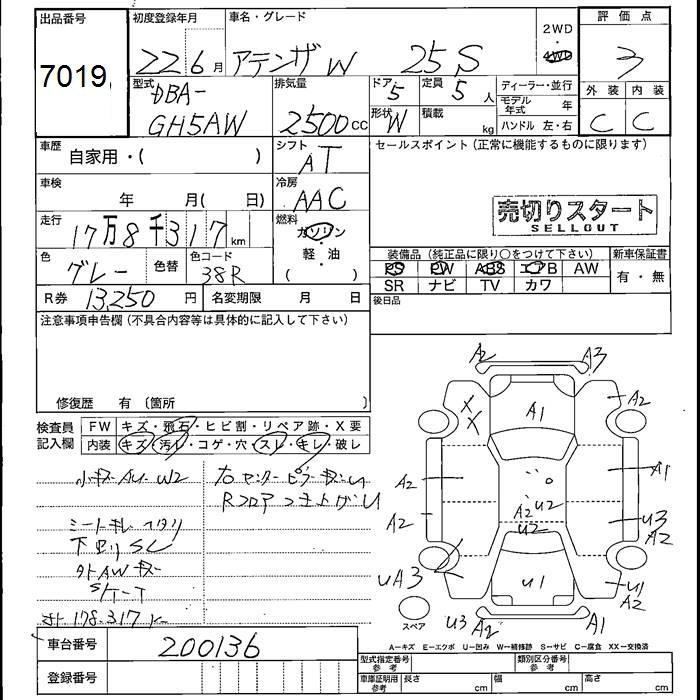 出品番号
7019
初度登録年月
22 6月
車名・グレード
アテンザW 25S
2WD
・
4WD
評価点
3
外装 内装
C C
型式
DBA-
GH5AW
排気量
2500cc
ドア
5
定員
5人
形状
W
積載
kg
ディーラー・並行
モデル年式 年
ハンドル 左・右
車歴
自家用・( )
シフト
AT
セールスポイント(正常に機能するものに限ります)
車検
年 月( 日)
冷房
AAC
売切りスタート
SELLOUT
走行
17万8千317km
燃料
ガソリン
・
軽・油
( )
色
グレー
色替
色コード
38R
装備品(純正品に限り○をつけて下さい)
新車保証書
PS PW ABS エアB AW
有・無
SR ナビ TV カワ
R券 13,250円
名変期限 月 日
後日品
注意事項申告欄(不具合内容等は具体的に記入して下さい)
修復歴 有〔箇所 〕
検査員
記入欄
FW キズ・飛石・ヒビ割・リペア跡・X要
内装 キズ・汚レ・コゲ・穴・スレ・キレ・破レ
小キズ AU W2
右センターピラーキズ
Rフロア
シートキレ
下廻りSC
外AWキズ
178.317
A2 A3
XX
A1
A2
A2
A1
A2
A2 U2
U2
U3
A2
UA3
U1
U1
A2
U3 A2
A1
スペア
A-キズ E-エクボ U-凹み W-補修跡 S-サビ C-腐食 XX-交換済
車台番号
200136
登録番号
型式指定番号
参考
類別区分番号
参考
車庫証明用
参考
長さ cm
幅 cm
高さ cm